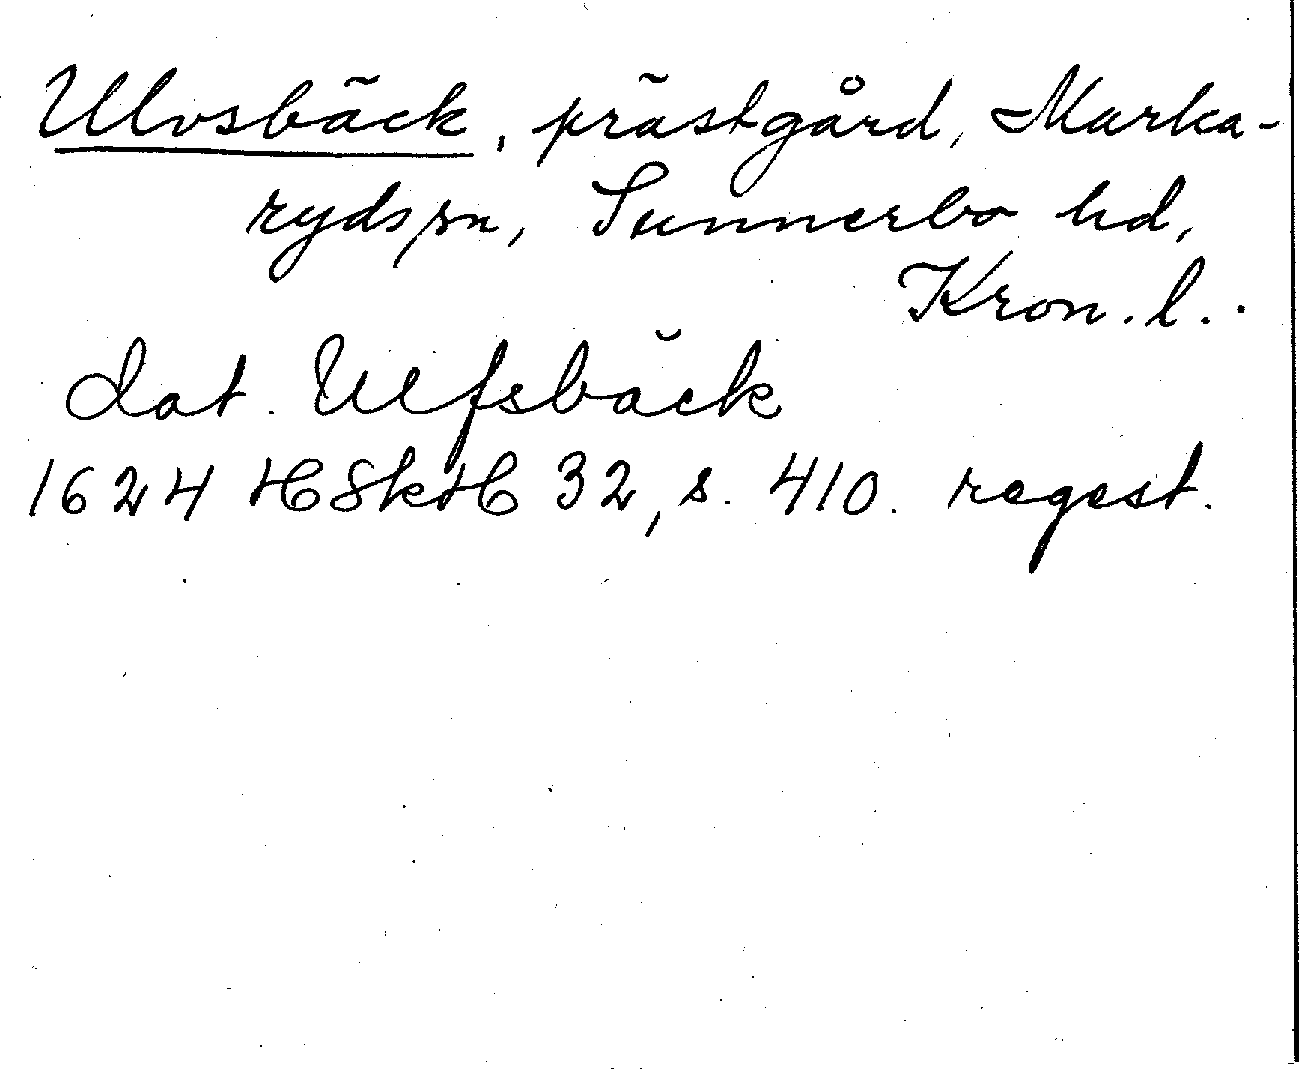 Ulvsbäck, prästgård, Marka-
ryds sn, Sunnerbo hd,
Kron. l.
dat. Ulfsbäck
1624 HSkH 32, s. 410. regest.